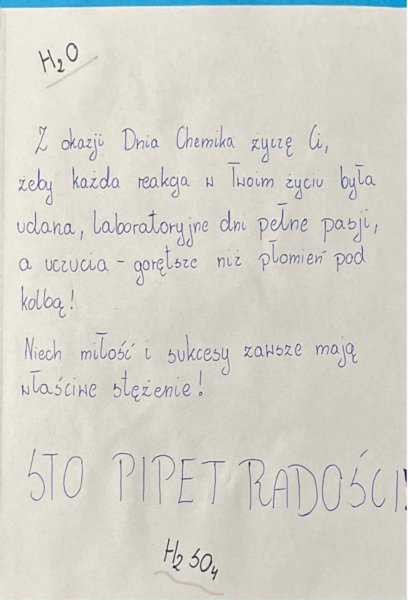 H₂O
Z okazji Dnia Chemika życzę Ci,
żeby każda reakcja w Twoim życiu była
udana, laboratoryjne dni pełne pasji,
a uczucia - gorętsze niż płomień pod
kolbą!
Niech miłość i sukcesy zawsze mają
właściwe stężenie!
STO PIPET RADOŚCI!
H₂SO₄